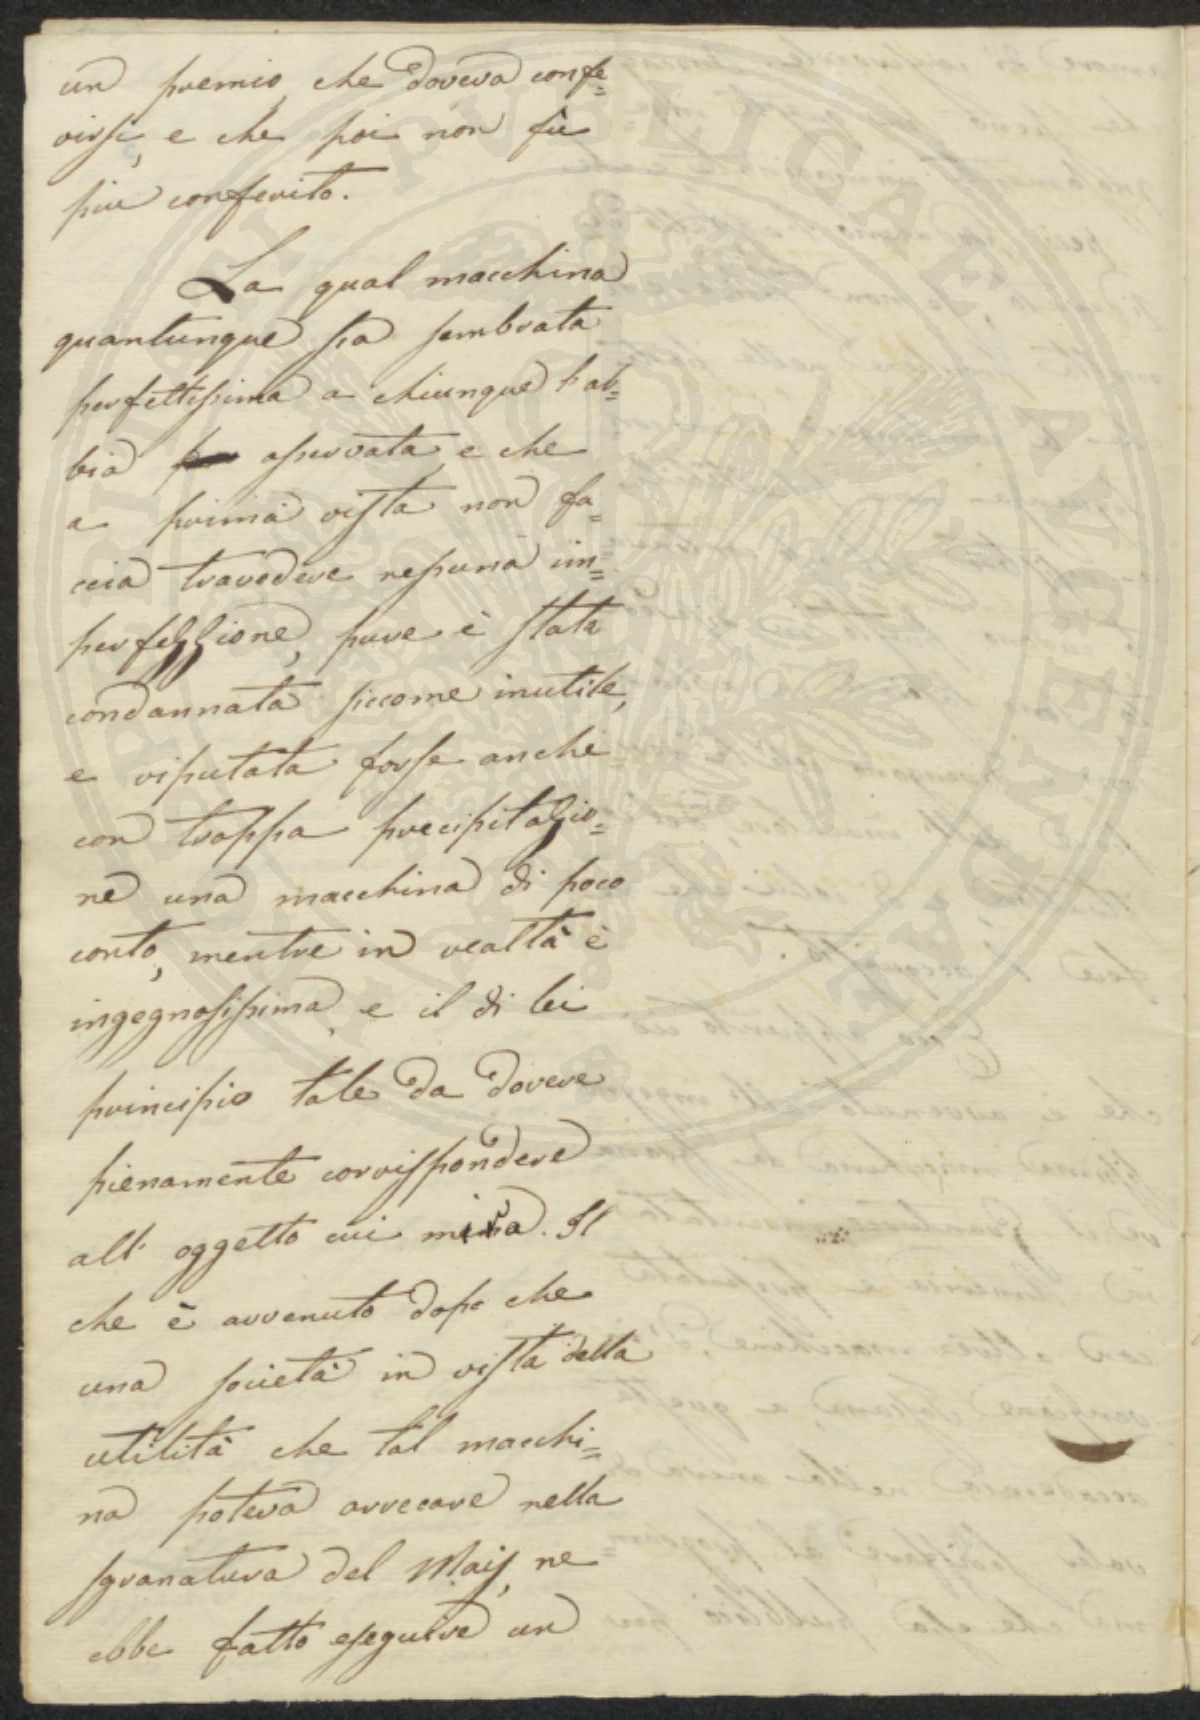 un premio, che doveva confe=
rirsi, e che poi non fù
più conferito.
La qual macchina
quantunque sia sembrata
perfettissima a chiunque l'ab=
bia osservata, e che
a prima vista non fa=
ccia travedere nessuna im=
perfezzione, pure è stata
condannata siccome inutile,
e riputata forse anche
con troppa precipitazio=
ne una macchina di poco
conto, mentre in realtà è
ingegnosissima, e il di lei
principio tale da dovere
pienamente corrispondere
all' oggetto cui mira. Il
che è avvenuto dopo che
una società in vista della
utilità che tal macchi=
na poteva arrecare nella
sgranatura del Mais, ne
ebbe fatto eseguire un